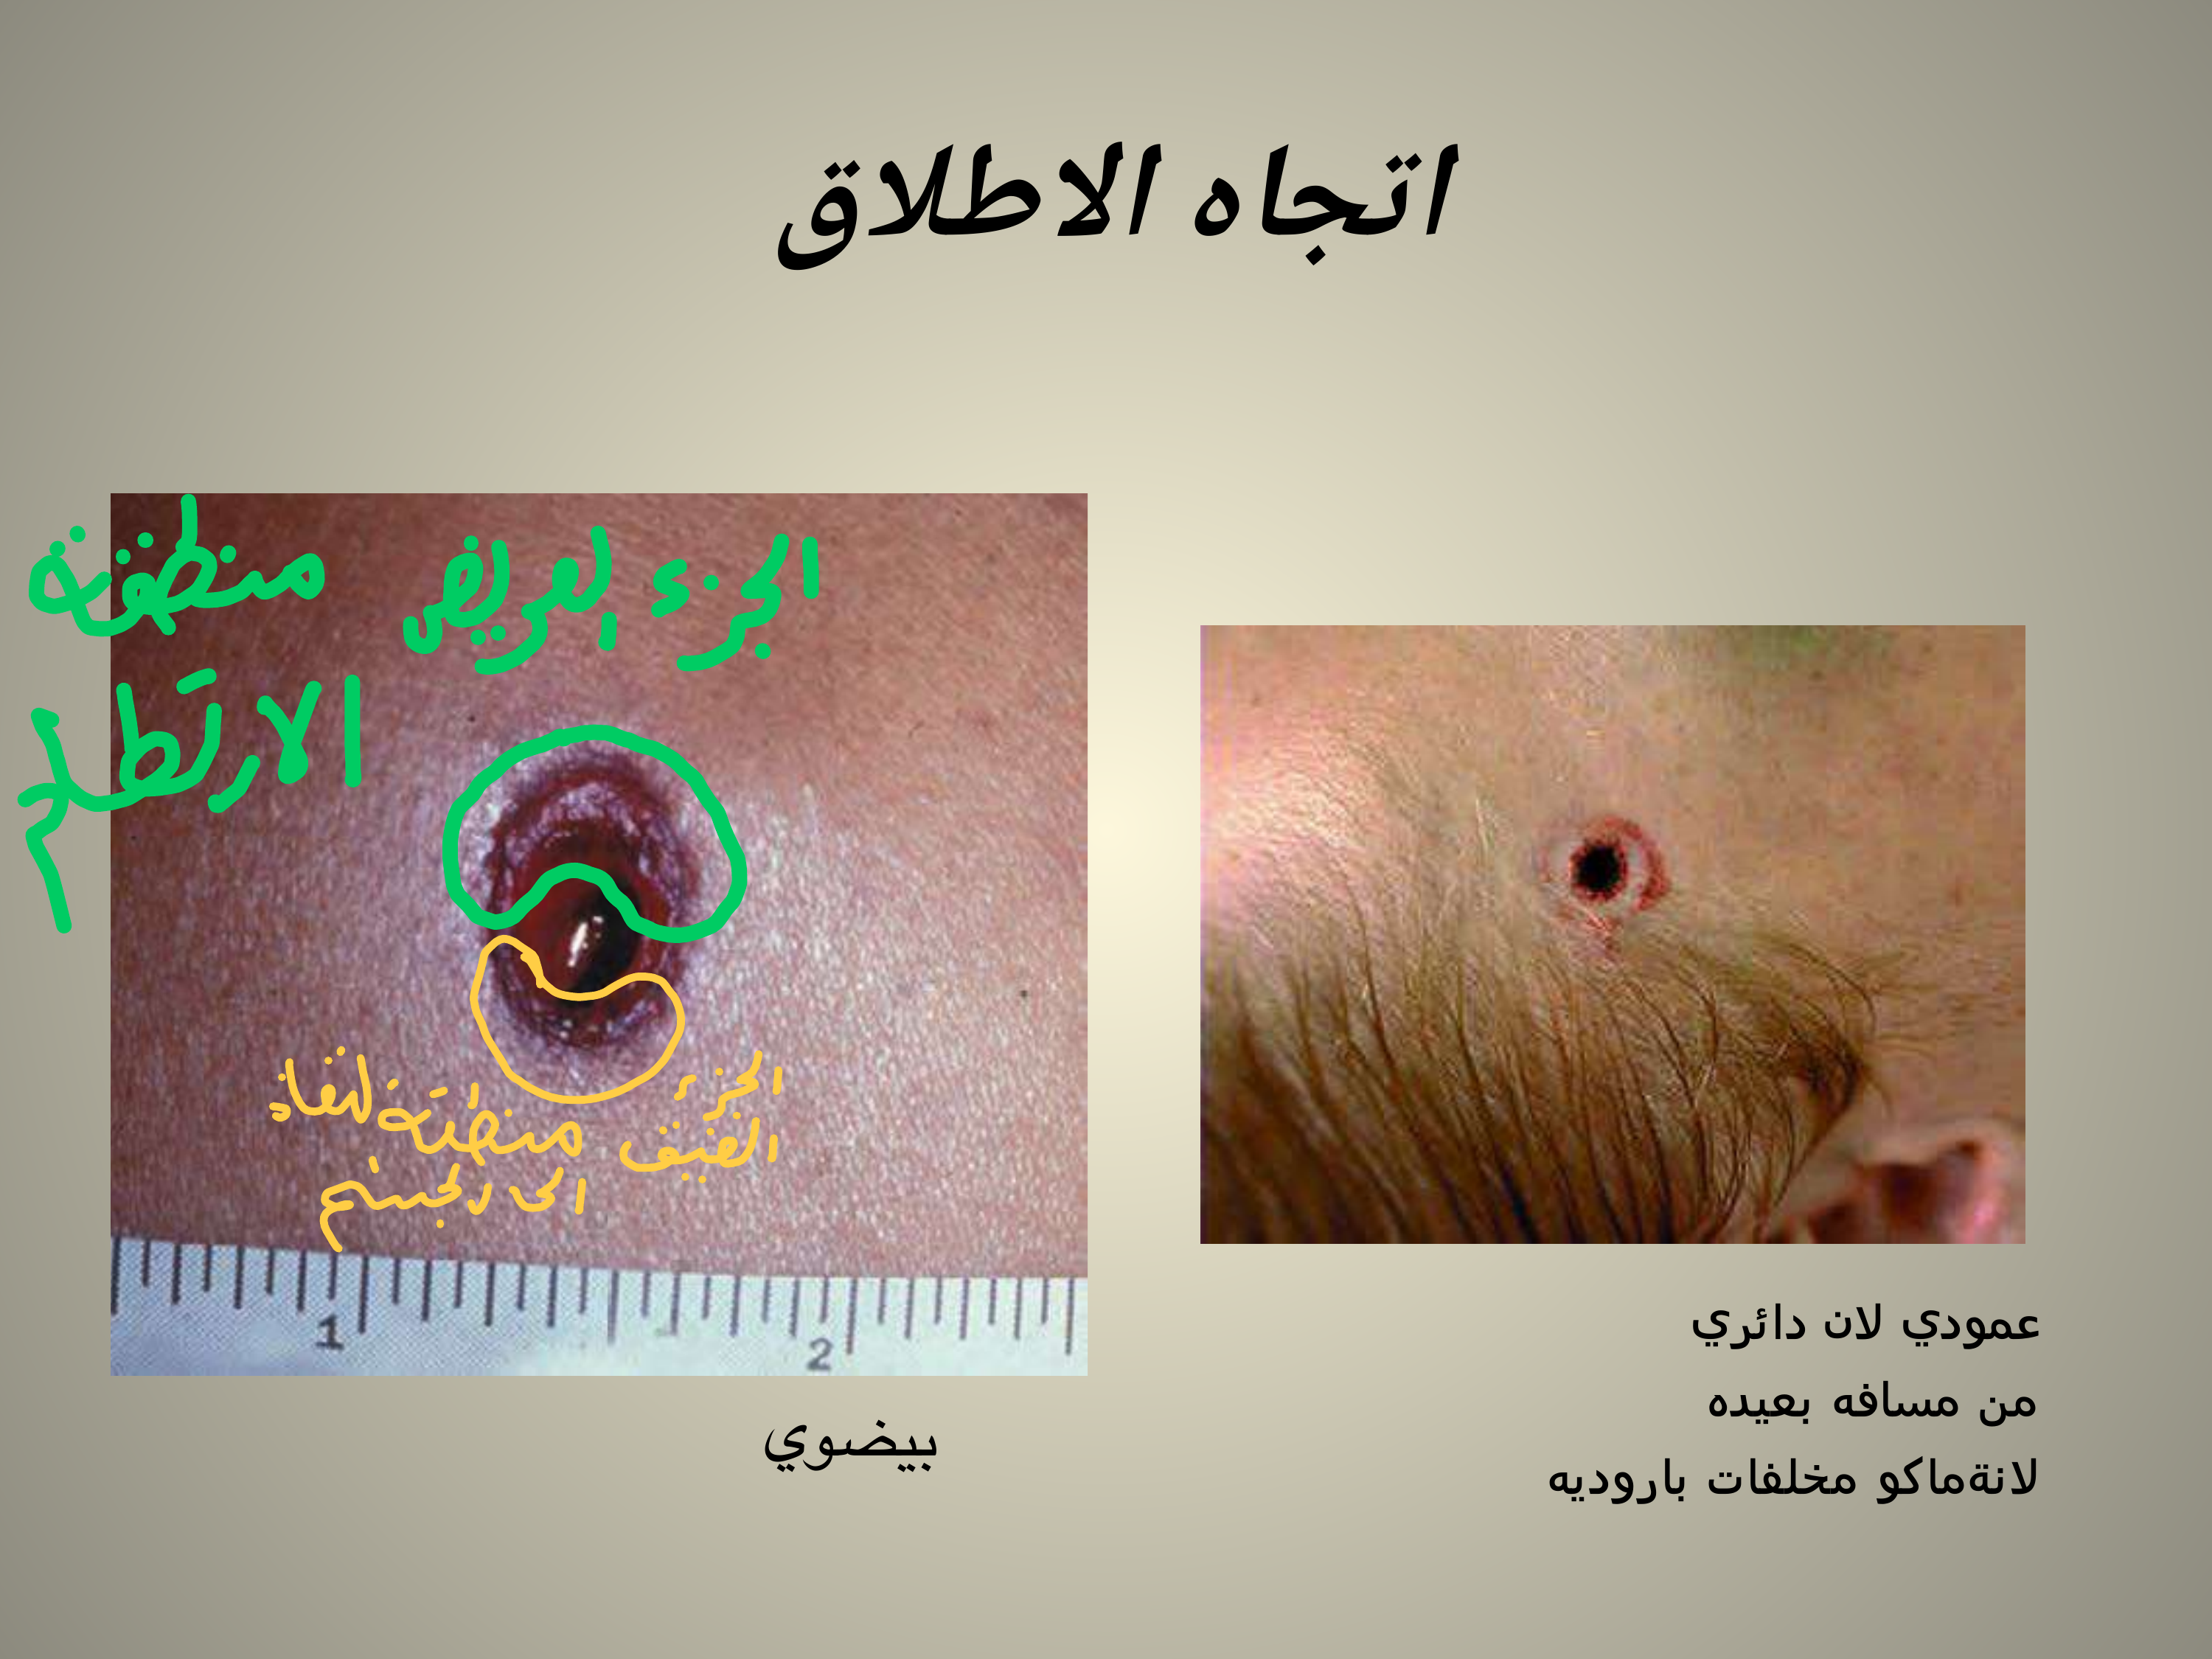 اتجاه الاطلاق
الجزء العريض منطقة
الارتطام
الجزء
الضيق
منطقة لنفاذ
الى الجسم
1 2
بيضوي
عمودي لان دائري
من مسافه بعيده
لانةماكو مخلفات باروديه